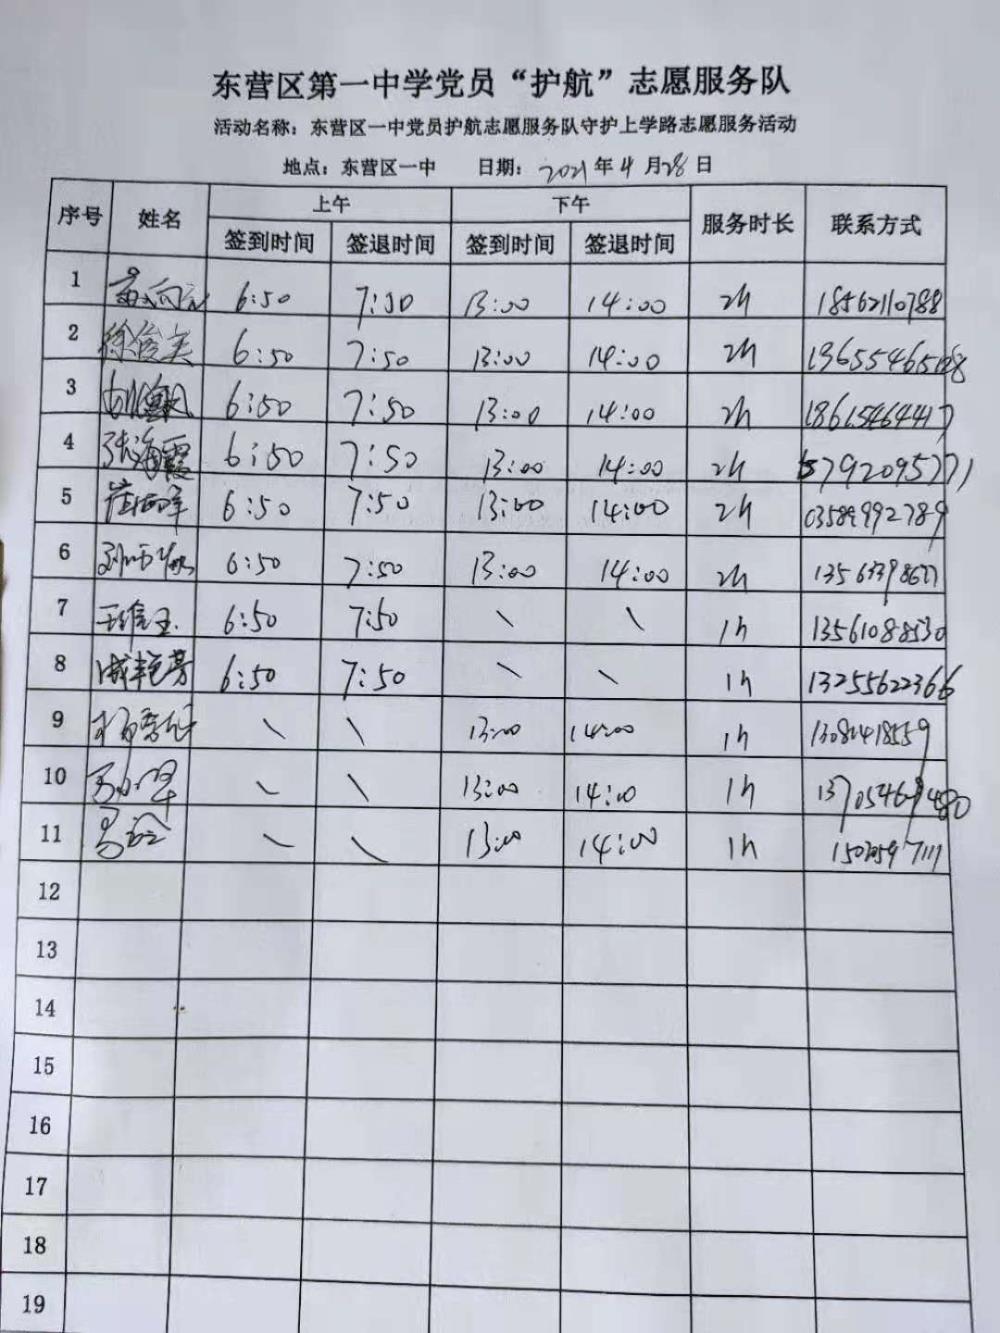 东营区第一中学党员“护航”志愿服务队
活动名称：东营区一中党员护航志愿服务队守护上学路志愿服务活动
地点：东营区一中 日期：2021年4月28日
序号 姓名 上午 下午 服务时长 联系方式
签到时间 签退时间 签到时间 签退时间
1 6:50 7:50 13:00 14:00 2h 18562110788
2 徐俊美 6:50 7:50 13:00 14:00 2h
3 6:50 7:50 13:00 14:00 2h 18615464417
4 张海霞 6:50 7:50 13:00 14:00 2h
5 6:50 7:50 13:00 14:00 2h
6 6:50 7:50 13:00 14:00 2h
7 6:50 7:50 \ \ 1h 13561088530
8 6:50 7:50 \ \ 1h 13255622366
9 \ \ 13:00 14:00 1h
10 \ \ 13:00 14:00 1h
11 \ \ 13:00 14:00 1h
12
13
14
15
16
17
18
19